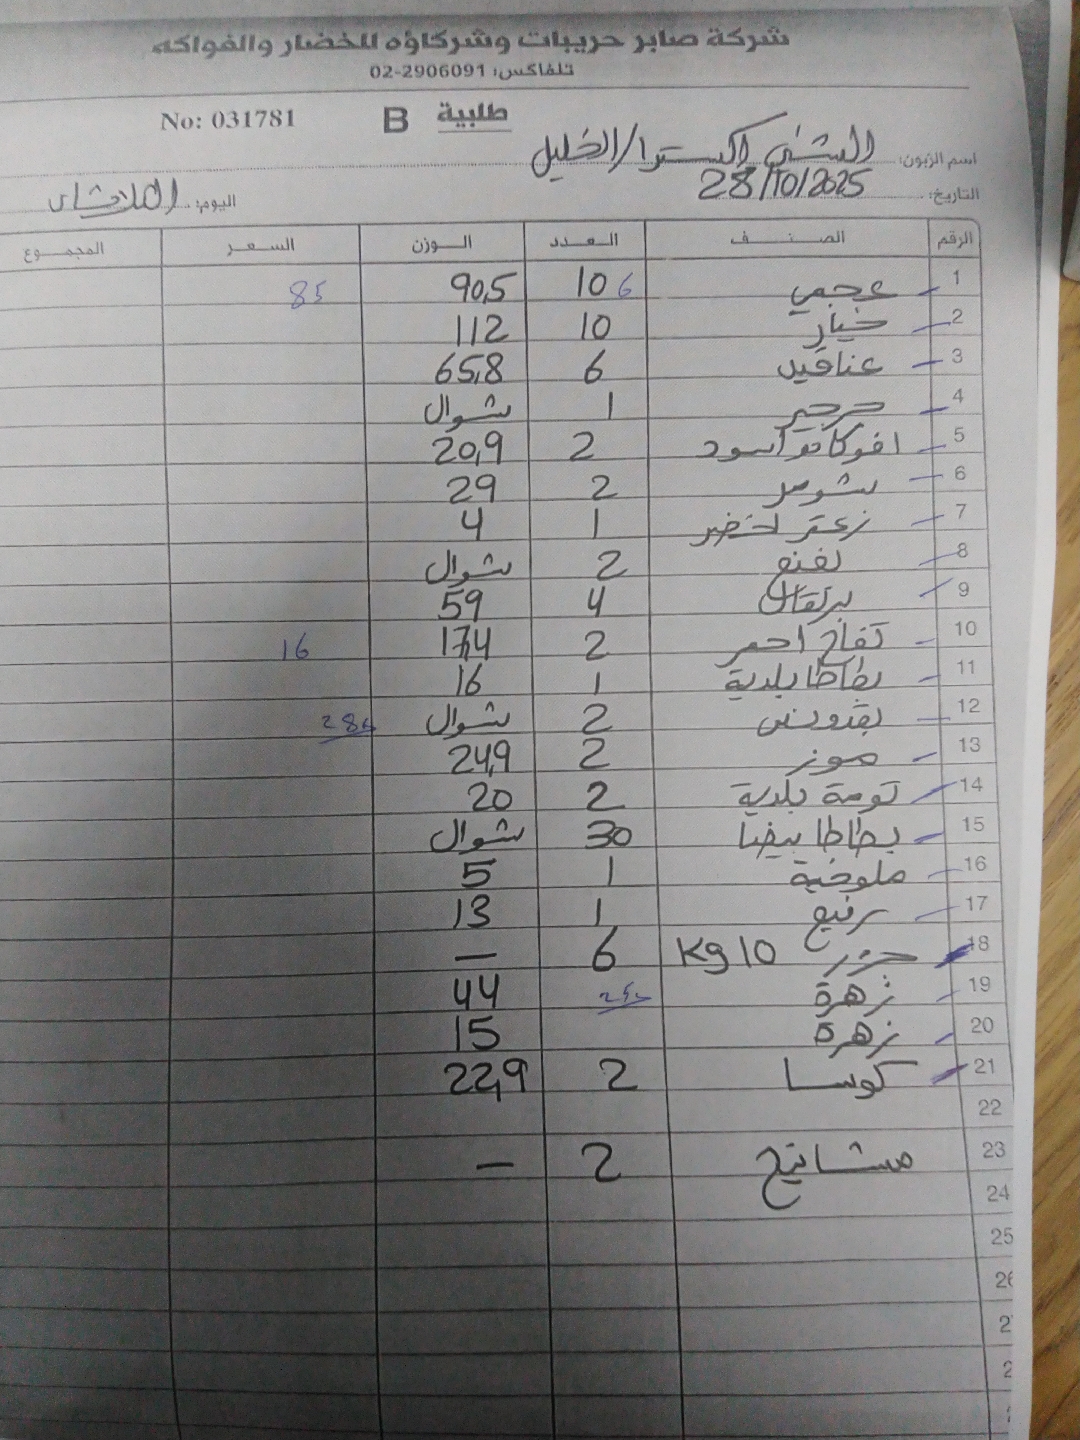 شركة صابر حريبات وشركاؤه للخضار والفواكه
تلفاكس: 02-2906091
No: 031781 B طلبية
اسم الزبون: الشني اكسترا/الخليل
التاريخ: 28/10/2025
اليوم: الثلاثاء
الرقم الصنف العدد الوزن السعر المجموع
1 عجمي 10 6 90,5 85
2 خيار 10 112
3 عناقيد 6 65,8
4 جرجير 1 شوال
5 افوكادو اسود 2 20,9
6 شومر 2 29
7 زعتر اخضر 1 4
8 نعنع 2 شوال
9 برتقال 4 59
10 تفاح احمر 2 17,4 16
11 بطاطا بلدية 1 16
12 بقدونس 2 شوال
13 موز 2 24,9
14 تومة بلدية 2 20
15 بطاطا بيضا 30 شوال
16 ملوخية 1 5
17 رفيع 1 13
18 جزر 10 Kg 6 —
19 زهرة 44
20 زهرة 15
21 كوسا 2 22,9
22
23 مشاتيح 2 —
24
25